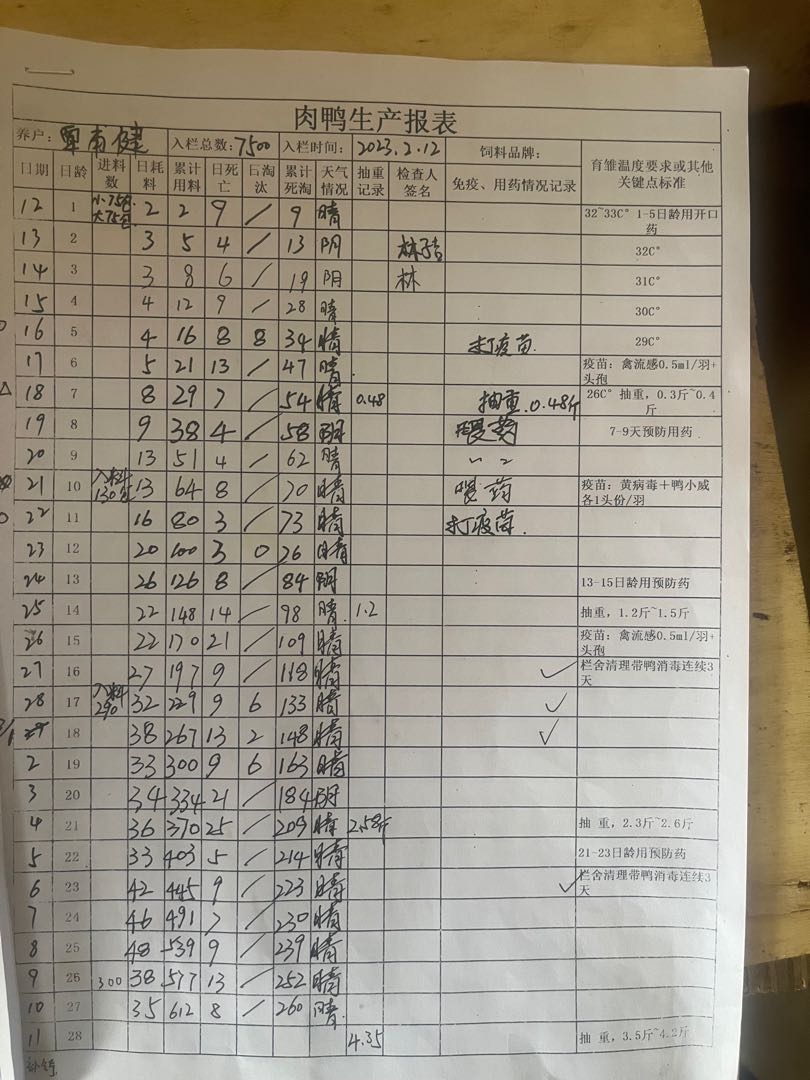 肉鸭生产报表
养户: 覃甫健 入栏总数: 7500 入栏时间: 2023.2.12 饲料品牌:
日期 日龄 进料数 日耗料 累计用料 日死亡 日淘汰 累计死淘 天气情况 抽重记录 检查人签名 免疫、用药情况记录 育雏温度要求或其他关键点标准
12 1 小75包 大75包 2 2 9 / 9 晴 32~33C° 1-5日龄用开口药
13 2 3 5 4 / 13 阴 32C°
14 3 3 8 6 / 19 阴 林 31C°
15 4 4 12 9 / 28 晴 30C°
16 5 4 16 8 8 34 晴 打疫苗. 29C°
17 6 5 21 13 / 47 晴 疫苗: 禽流感0.5ml/羽+头孢
18 7 8 29 7 / 54 晴 0.48 抽重.0.48斤 26C° 抽重, 0.3斤~0.4斤
19 8 9 38 4 / 58 阴 喂药 7-9天预防用药
20 9 13 51 4 / 62 晴 〃 〃
21 10 入料130包 13 64 8 / 70 晴 喂药 疫苗: 黄病毒+鸭小威各1头份/羽
22 11 16 80 3 / 73 晴 打疫苗.
23 12 20 100 3 0 76 晴
24 13 26 126 8 / 84 阴 13-15日龄用预防药
25 14 22 148 14 / 98 晴. 1.2 抽重, 1.2斤~1.5斤
26 15 22 170 21 / 109 晴 疫苗: 禽流感0.5ml/羽+头孢
27 16 27 197 9 / 118 晴 ✓ 栏舍清理带鸭消毒连续3天
28 17 入料290 32 229 9 6 133 晴 ✓
18 38 267 13 2 148 晴 ✓
2 19 33 300 9 6 163 晴
3 20 34 334 21 / 184 阴
4 21 36 370 25 / 209 晴 2.58斤 抽 重, 2.3斤~2.6斤
5 22 33 403 5 / 214 晴 21-23日龄用预防药
6 23 42 445 9 / 223 晴 ✓ 栏舍清理带鸭消毒连续3天
7 24 46 491 7 / 230 晴
8 25 48 539 9 / 239 晴
9 26 300 38 577 13 / 252 晴
10 27 35 612 8 / 260 晴.
11 28 4.35 抽 重, 3.5斤~4.2斤